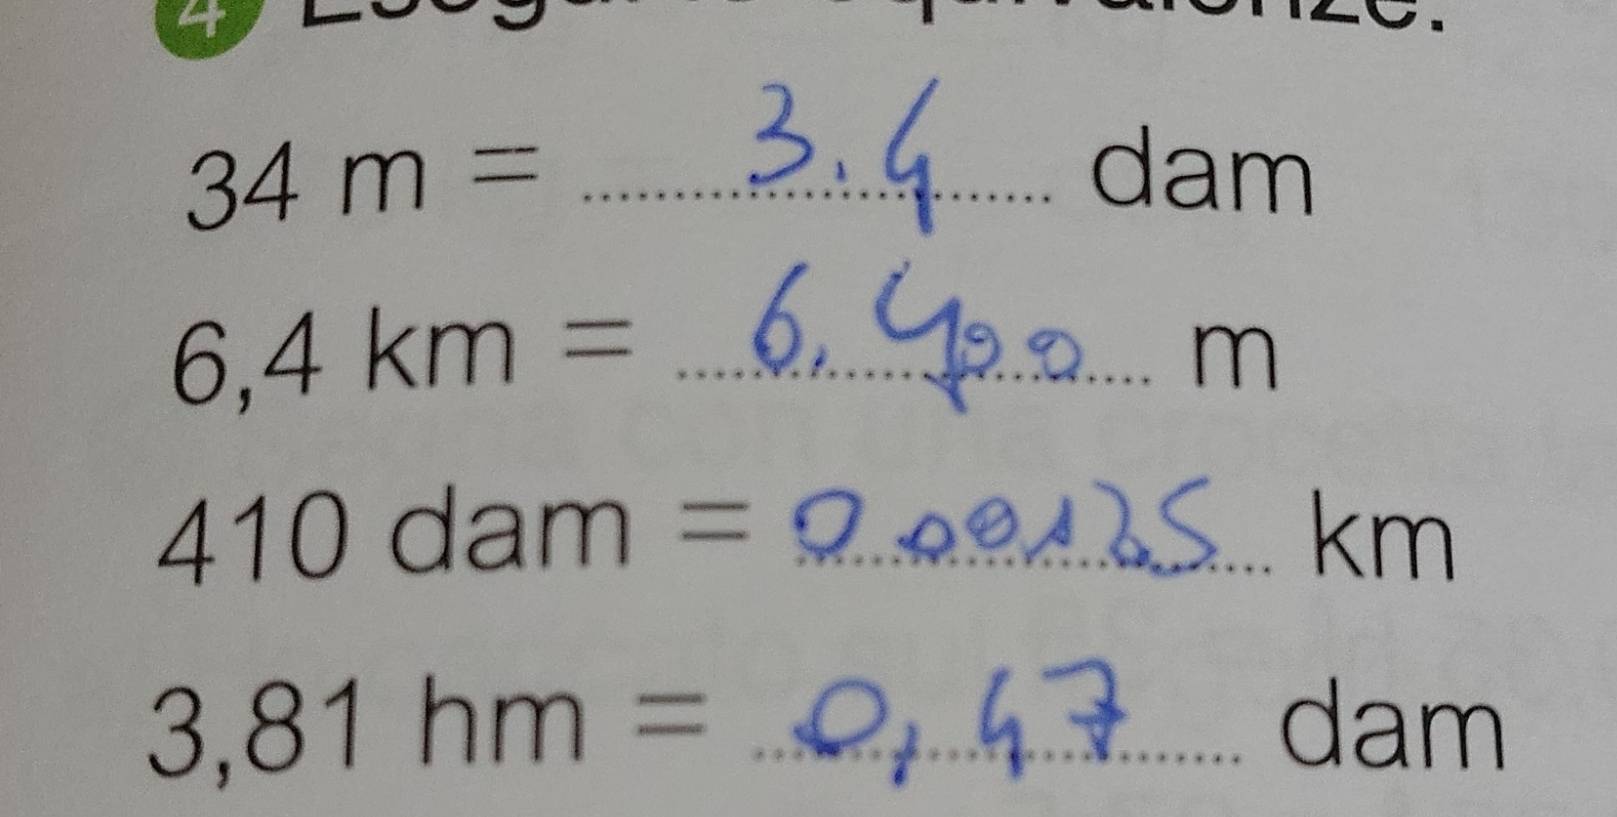 4 Esegui le equivalenze.
34 m = 3.4 dam
6,4 km = 6.400 m
410 dam = 0.00125 km
3,81 hm = 0,47 dam